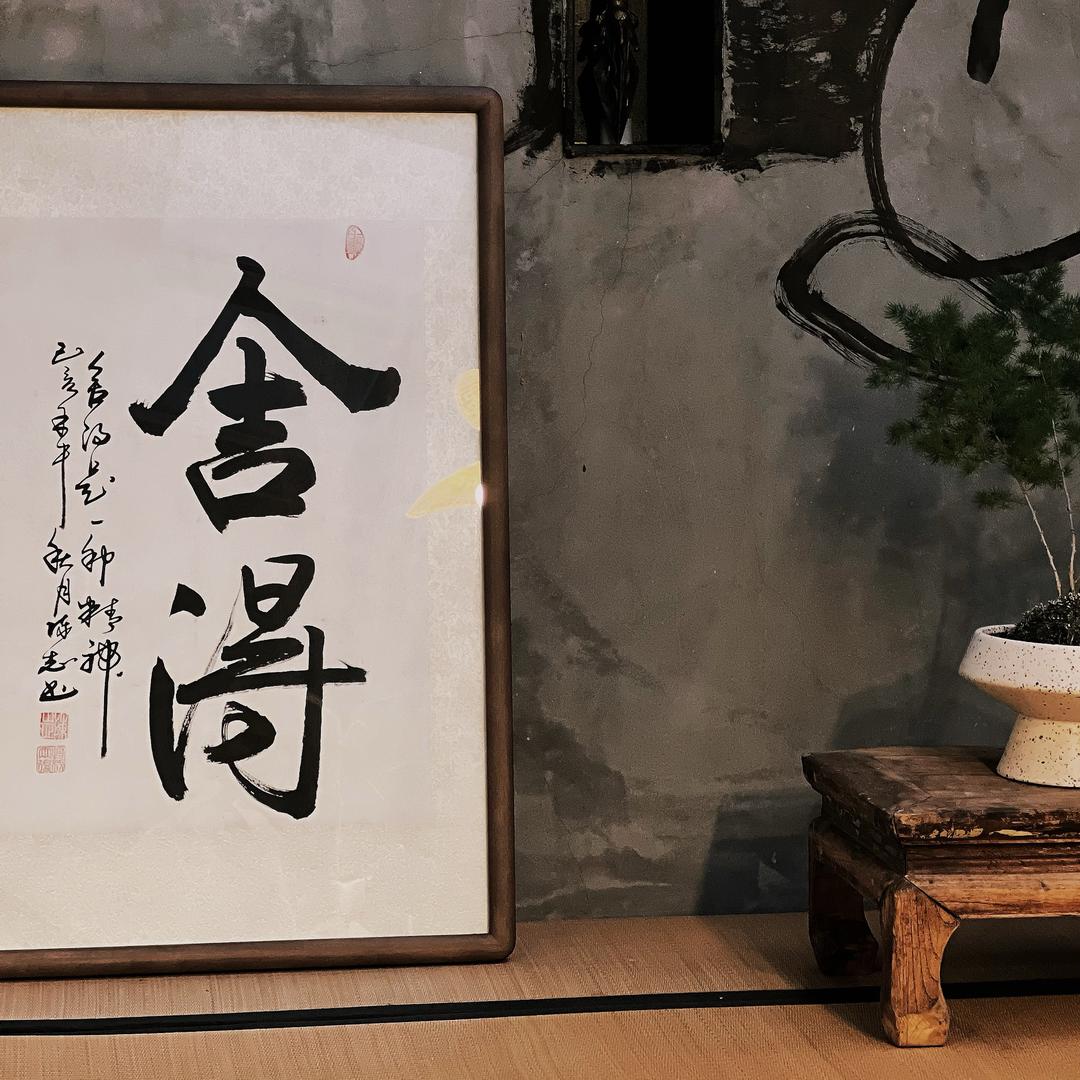 舍得
舍得是一种精神
己亥年中秋月陈志